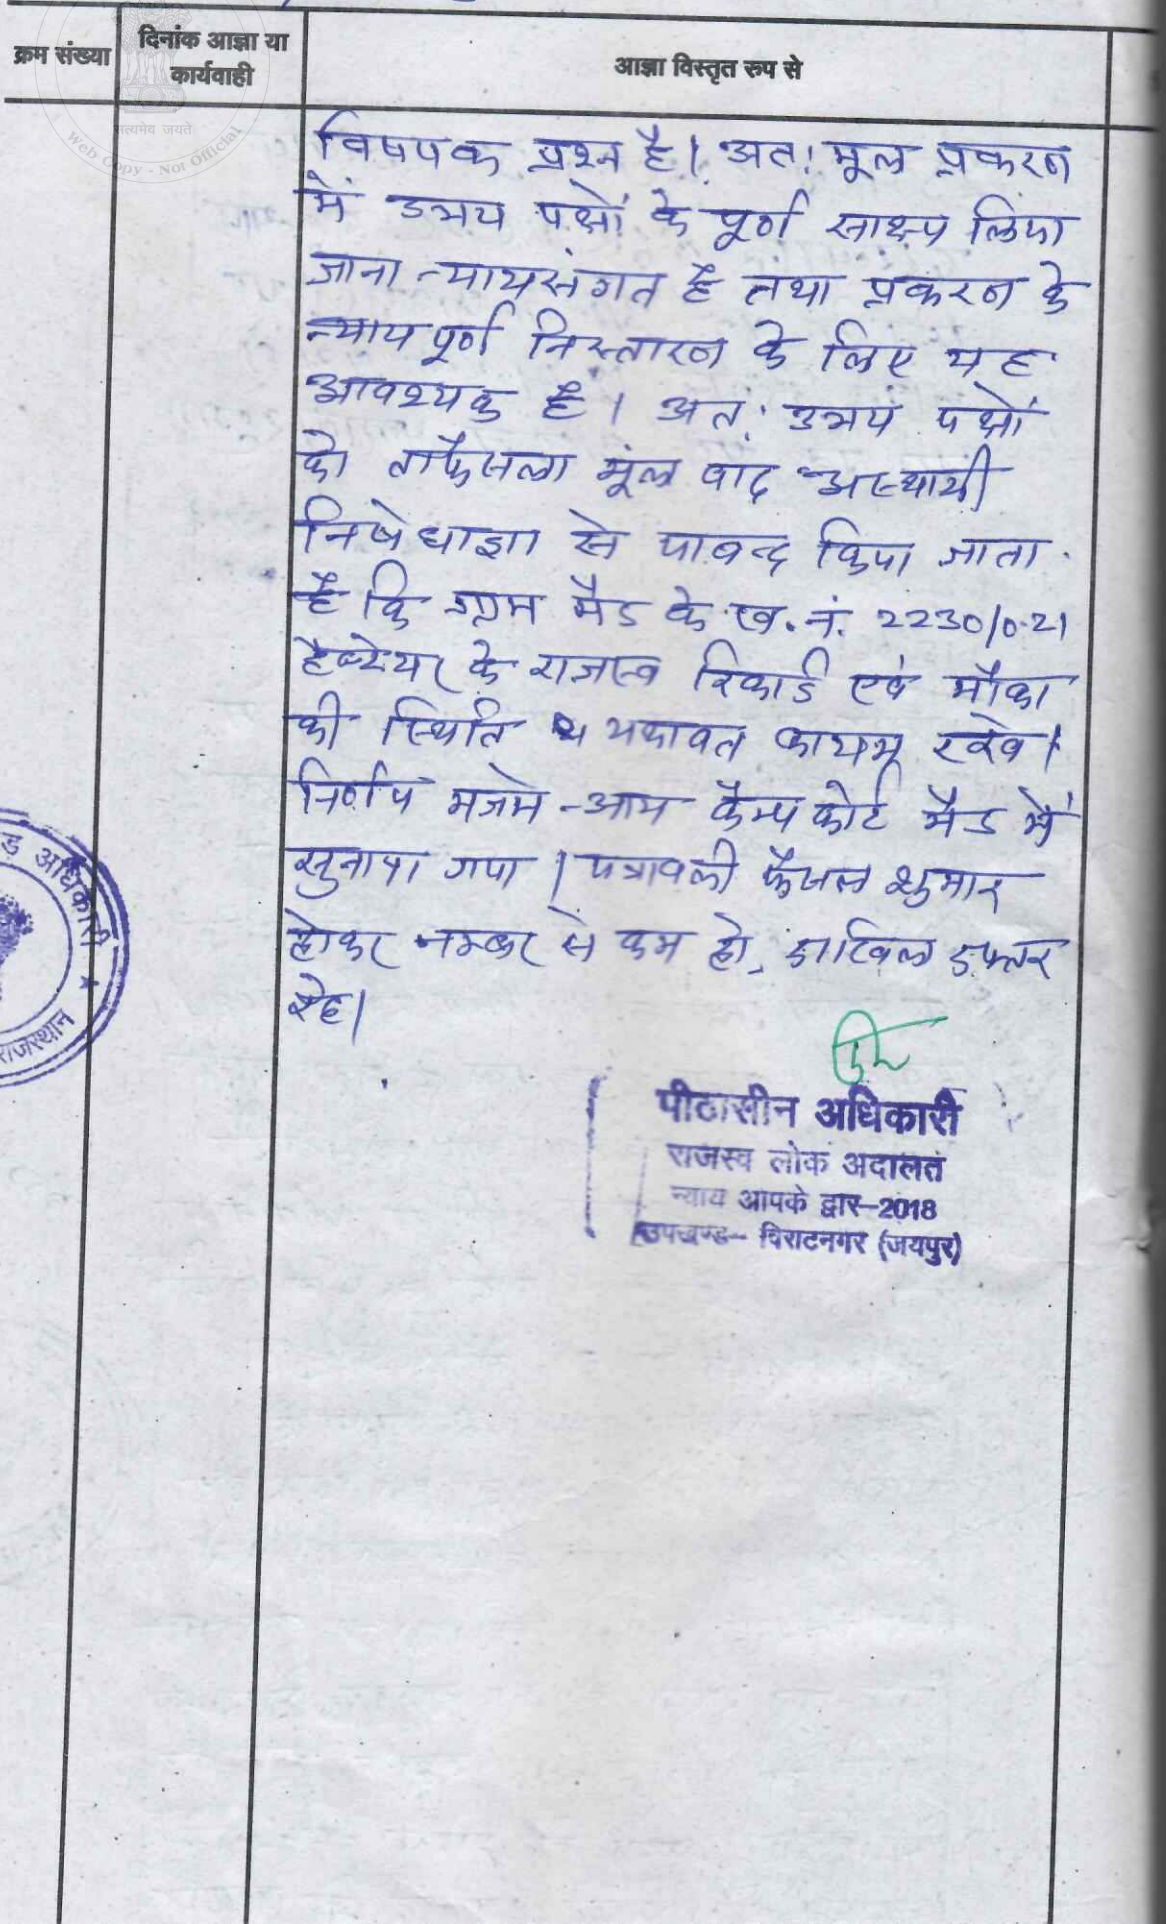 क्रम संख्या
दिनांक आज्ञा या
कार्यवाही
आज्ञा विस्तृत रुप से
सत्यमेव जयते
Web Copy - Not Official
विषयक प्रश्न है। अतः मूल प्रकरण
में उभय पक्षों के पूर्ण साक्ष्य लिया
जाना न्यायसंगत है तथा प्रकरण के
न्यायपूर्ण निस्तारण के लिए यह
आवश्यक है। अतः उभय पक्षों
को ताफैसला मूल वाद अस्थायी
निषेधाज्ञा से पाबन्द किया जाता
है कि ग्राम मैड के ख. नं. 2230/0.21
हैक्टेयर के राजस्व रिकार्ड एवं मौका
की स्थिति यथावत कायम रखे।
निर्णय मजमे-आम कैम्प कोर्ट मैड में
सुनाया गया। पत्रावली फैसल शुमार
होकर नम्बर से कम हो, दाखिल दफ्तर
रहे।
अधिकारी
राजस्थान
पीठासीन अधिकारी
राजस्व लोक अदालत
न्याय आपके द्वार-2018
उपखण्ड- विराटनगर (जयपुर)